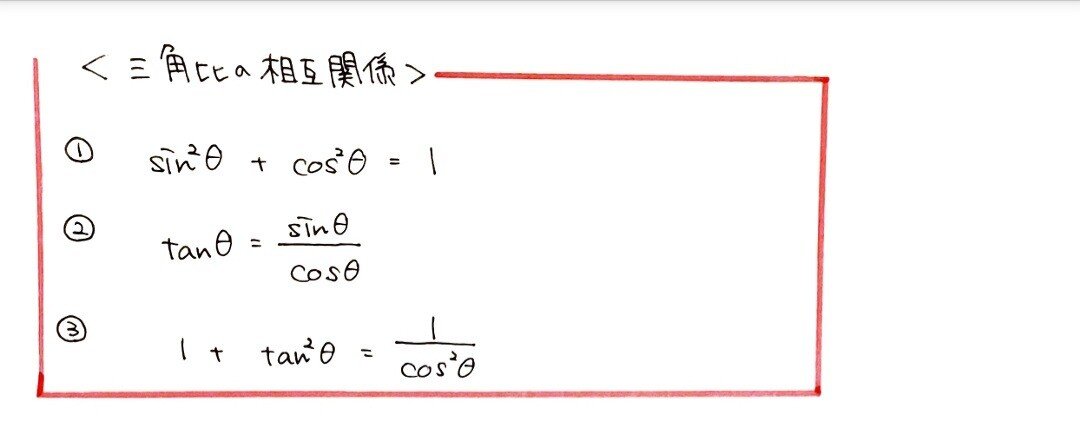 <三角比の相互関係>
① sin²θ + cos²θ = 1
② tanθ = sinθ/cosθ
③ 1 + tan²θ = 1/cos²θ